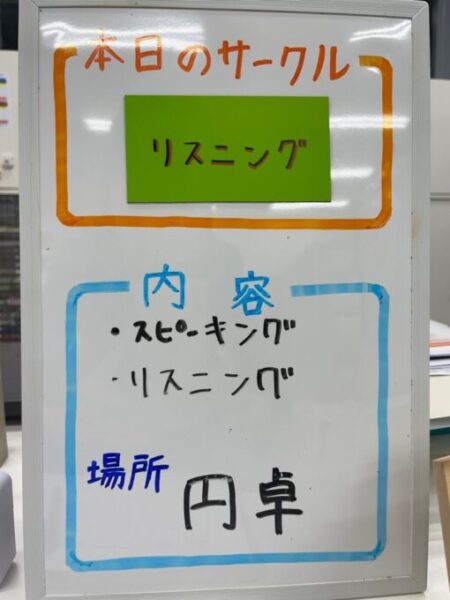 本日のサークル
リスニング
内容
・スピーキング
・リスニング
場所 円卓